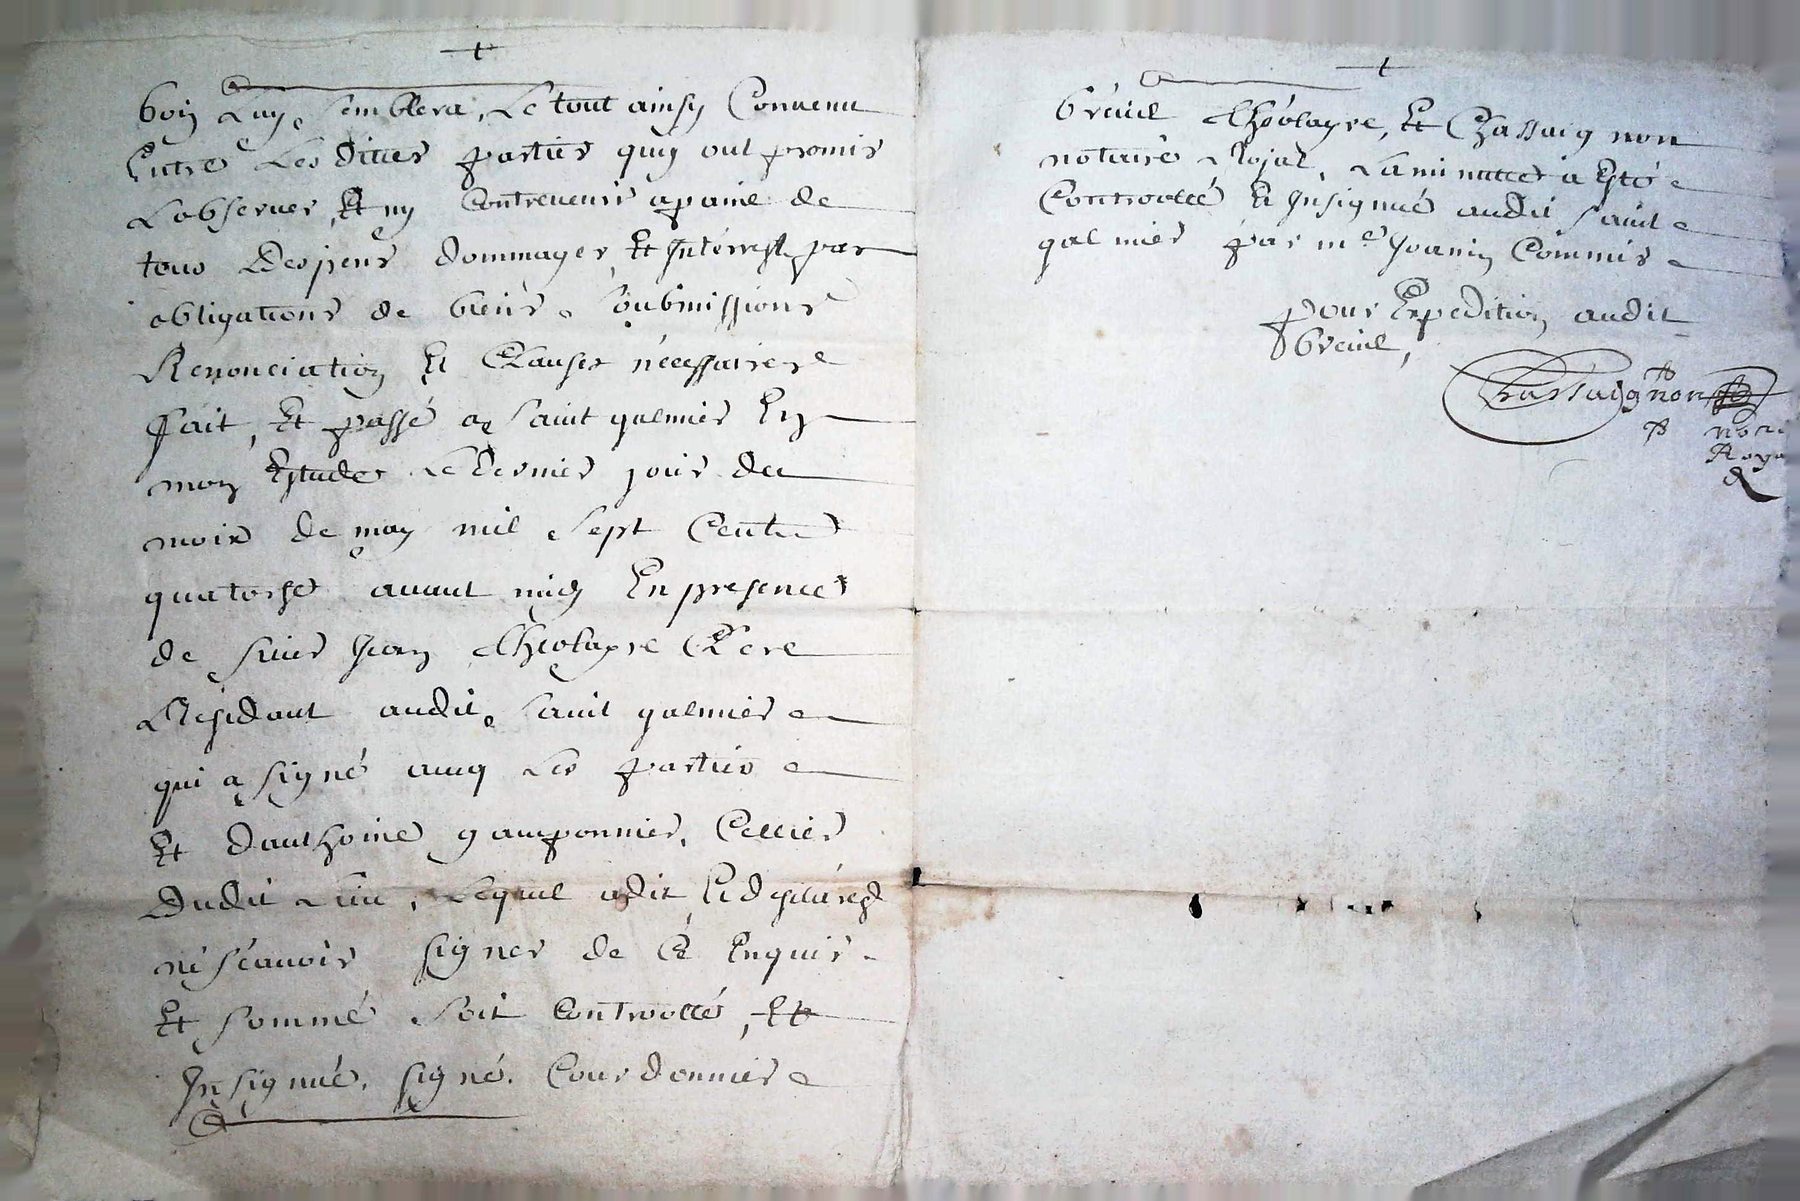 bon luy semblera, Le tout ainsy Convenu
Entre Lesdittes parties quy ont promis
Lobserver, Et ny Contrevenir apaine de
tous Despens dommages, Et Interrest par
obligations de biens soubmissions
Renonciation Et Clauses nécessaires
fait, Et passé a saint galmier En
mon Estude Le dernier jour du
mois de may mil sept Cents
quatorse avant midy En presence
de sieur Jean Theolayre Clere
Résidant audit saint galmier
qui a signé avec Les parties
Et danthoine gauponnier, Cellier
Dudit Lieu, Lequel adit, Et desclaré
né scavoir signer de Cé Enquis
Et sommé soit Controollé, Et
Insignué, signé. Courdonnier
breuil Théolayre, Et Chassaignon
notaire Rojal, La minutte a Esté
Controollé Et Insignué audit saint
galmier par me Joanin Commis
pour Expedition audit
breuil,
Chassaignon
Roya